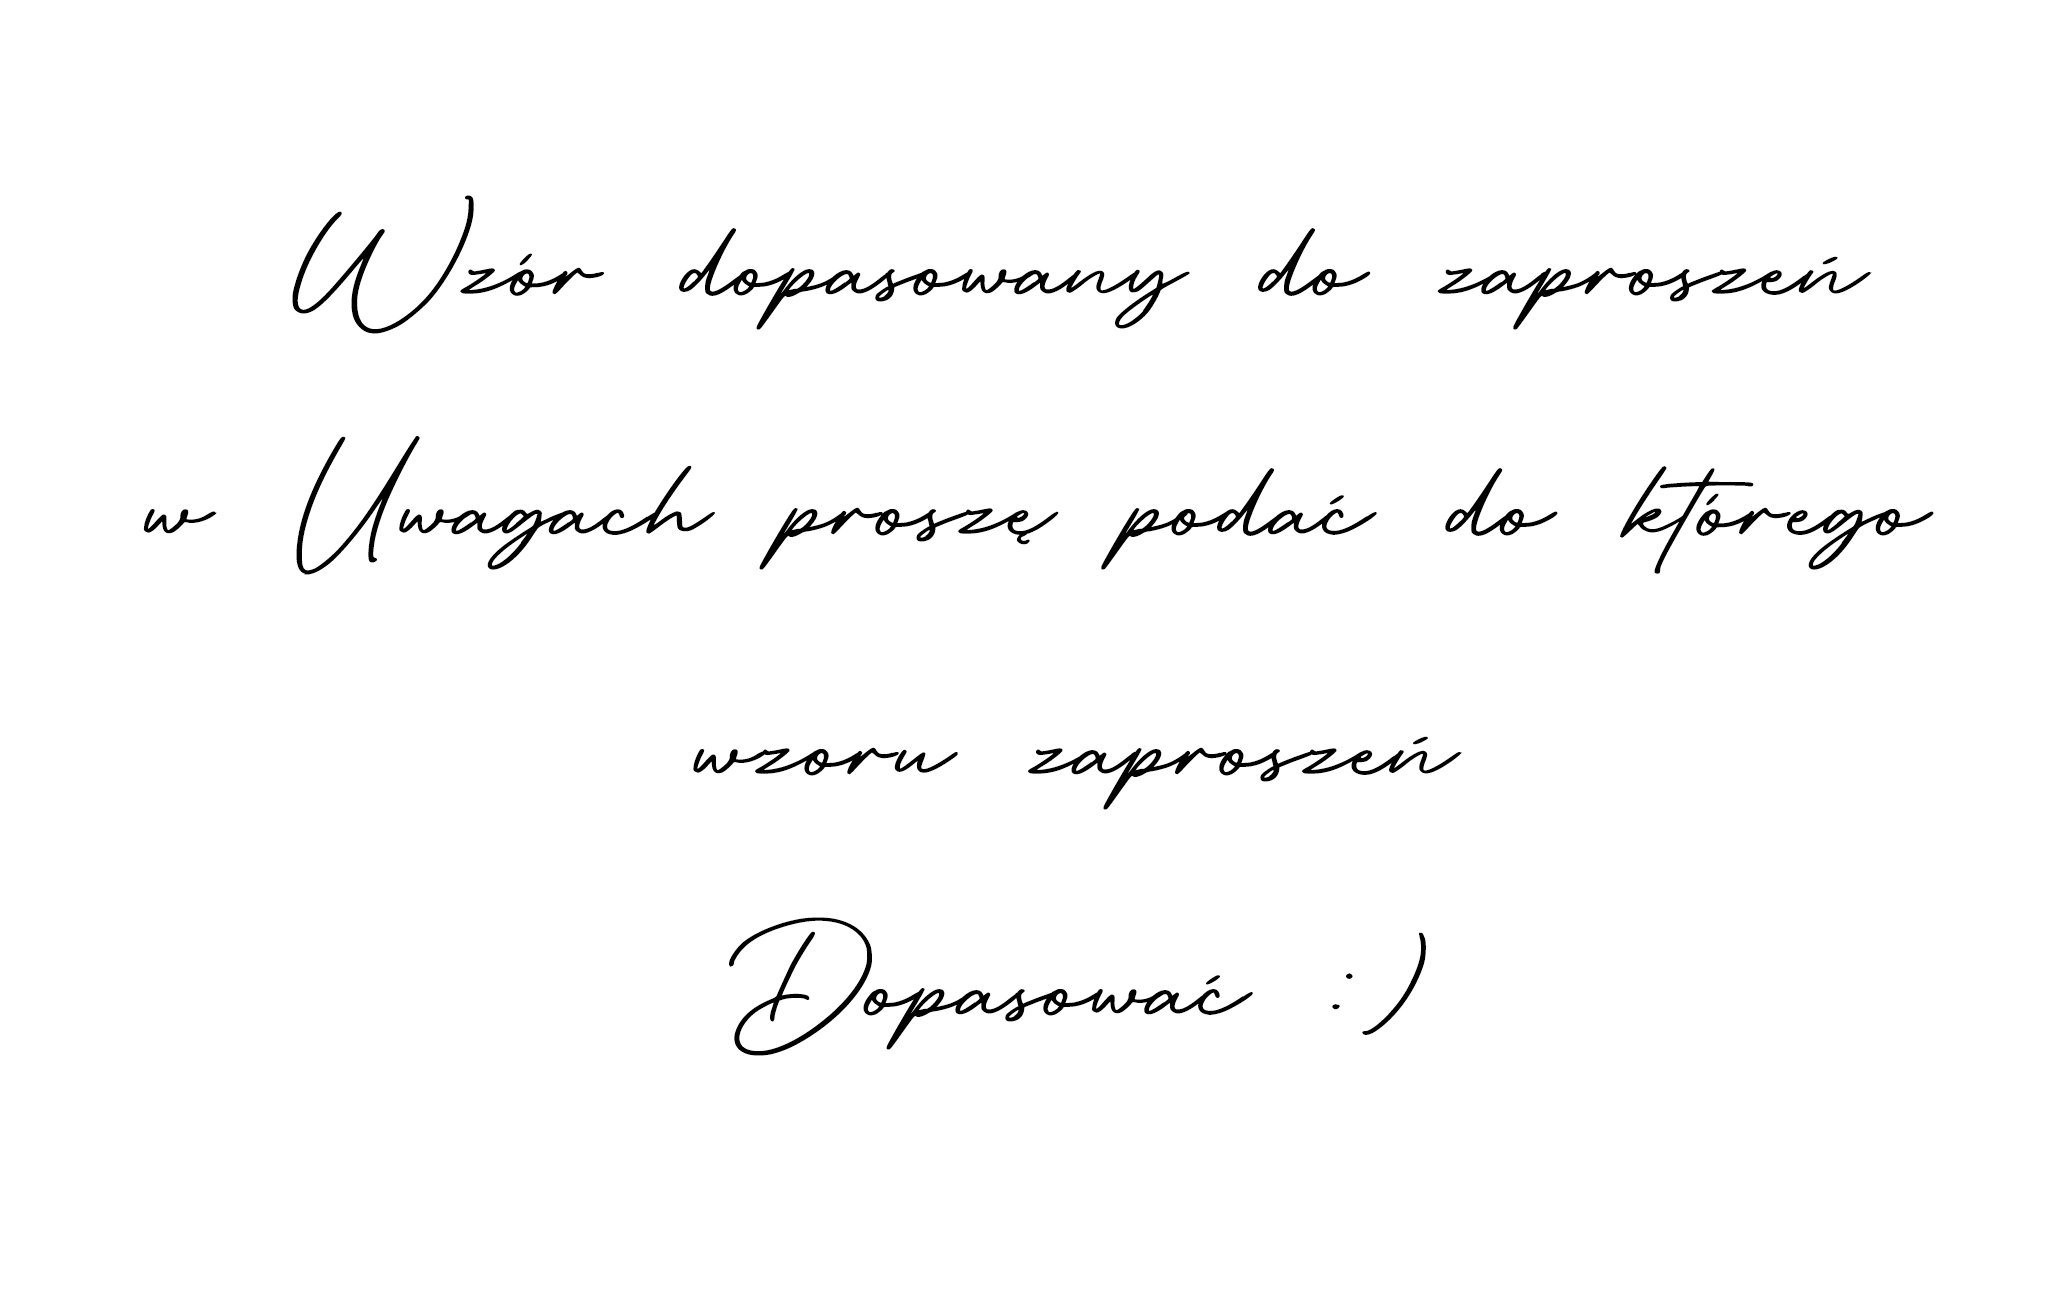 Wzór dopasowany do zaproszeń
w Uwagach proszę podać do którego
wzoru zaproszeń
Dopasować :)